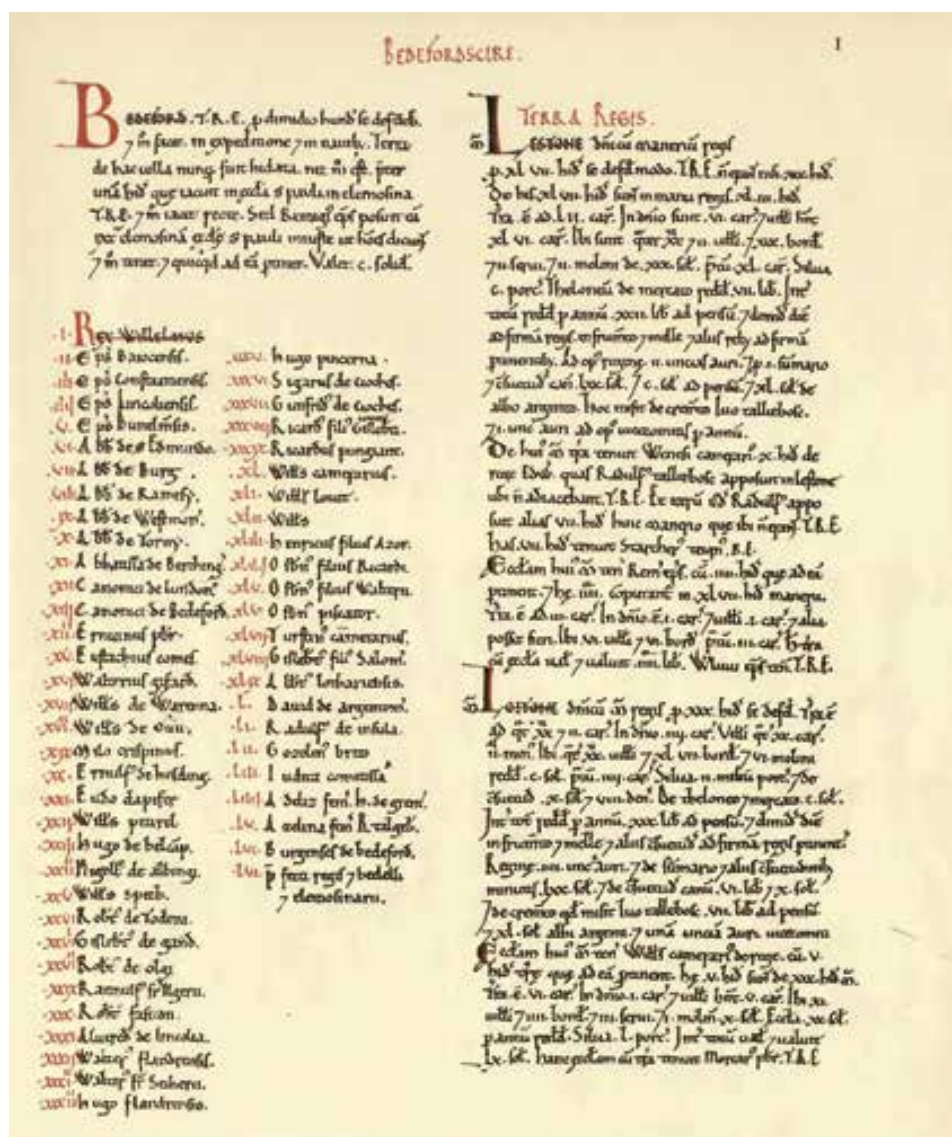 BEDEFORDSCIRE.
I
BEDEFORD. T.R.E. p dimidio hund se defdeb.
7 m facit. in expeditione 7 in nauib. Terra
de hac uilla nunq fuit hidata. nec m est. pter
una hid que iacuit in æccla S pauli in elemosina
T.R.E. 7 m iacet recte. Sed
elemosina æccle S pauli iniuste ut hoes dicunt
7 m tenet. 7 quicqd ad ea ptinet. Valet. c. solid.
.I. Rex Willelmus
.II. Eps Baiocensis.
.III. Eps Constantiensis.
.IIII. Eps Lincoliensis.
.V. Eps Dunelmsis.
.VI. Abb de S Edmundo.
.VII. Abb de Burg.
.VIII. Abb de Ramesy.
.IX. Abb de Westmon.
.X. Abb de Torny.
.XI. Abbatissa de Berching
.XII. Canonici de Lundon
.XIII. Canonici de Bedeford
Ernuinus pbr.
.XV. Eustachius comes.
.XVI. Walterius gifard.
.XVII. Wills de Warenna.
Wills de Ouu.
.XIX. Milo crispinus.
.XX. Ernulf de hesding.
.XXI. Eudo dapifer
.XXII. Wills peurel
.XXIII. Hugo de belcap.
Nigell de albing.
.XXV. Wills spech.
.XXVI. Robt de Todeni.
Gislebt de gand.
Robt de olgi
.XXIX. Rannulf fr Ilgerii.
.XXX. Robt fafiton.
.XXXI. Aluered de lincolia.
Walter flandrensis.
Walter fr Seiherii.
Hugo flandrensis.
.XXXV. Hugo pincerna.
.XXXVI. Sigarus de cioches.
.XXXVII. Gunfrid de cioches.
.XXXVIII. Ricard fili Gislebti.
.XXXIX. Ricardus pungiant.
.XL. Wills camerarius.
.XLI. Wills louet.
.XLII. Wills
.XLIII. Henricus filius Azor.
.XLIIII. Osbn filius Ricardi
.XLV. Osbn filius Walterii.
Osbn piscator.
.XLVII. Turstin camerarius.
.XLVIII. Gislebt fili Salom.
.XLIX. Albt lothariensis.
.L. Dauid de argentom.
.LI. Radulf de insula.
.LII. Gozelin brito
.LIII. Iudita comitissa
.LIIII. Adeliz fem. H. de grent.
.LV. Azelina fem R talgeb.
.LVI. Burgenses de bedeford.
.LVII. Pfecti regis 7 bedelli
7 elemosinarii.
TERRA REGIS.
m LESTONE dnicu manerium regis
p. XL. VII. hid se defd modo. T.R.E.
De his XL. VII. hid sunt in manu regis
Tra. e ad. LII. car. In dnio sunt. VI. car. 7 uilli
XL. VI. car. Ibi sunt 7 II. uilli. 7 XXX. bord.
7 II serui. 7 II. molini de. XXX. sol. Ptu. XL. car. Silua
c. porc. Theloneu de mercato redd. VII. lib. Int
totu redd p annu. XXII. lib ad pensu. 7 dimid die
ad firma regis in frumento 7 melle 7 aliis reb ad firma
ptinentib. Ad op regine. II. uncias auri. 7 p. I. sumario
7 c. sol ad pensu. 7 XL. sol de
albo argento. hoc misit de cremto Iuo tallebosc.
7 I. unc auri ad op uicecomitis p annu.
De hui m tra tenuit Wenesi camerari. X. hid de
rege Edw. quas Radulf tallebosc apposuit in Lestone
ubi n adiacebant. T.R.E. Et iteru id Radulf appo
suit alias VII. hid huic manerio que ibi T.R.E.
has. VII. hid tenuit Starcher teign. R.E.
Ecclam hui m ten Remi eps. cu. IIII. hid que ad ea
ptinent. in XL VII. hid manerii.
Tra. e ad. III. car. In dnio. e. I. car. 7 uilli. I. car. 7 alia
posset fieri. Ibi VI. uilli 7 VI. bord. Ptu. III. car.
T.R.E.
m dnicu m regis. p. XXX. hid se defd. Tra. e
In dnio. IIII. car.
Ibi uilli 7 XL. VII. bord. 7 VI. molini
redd. c. sol. Ptu. IIII. car. Silua. II. milium porc. 7 de
X. sol 7 VIII. den. De theloneo 7 mercato c. sol.
Int tot redd p annu. XXX. lib ad pensu. 7 dimid die
in frumento 7 melle 7 aliis ad firma regis ptinent
Regine. IIII. unc auri. 7 de sumario 7 aliis
minutis. LXX. sol. 7 de VI. lib 7 X. sol.
7 de cremto qd misit Iuo tallebosc. VII. lib ad pensu
7 XL. sol albi argenti. 7 una uncia auri uicecomiti
Ecclam hui m ten Wills camerari de rege. cu. V.
hid tre que ad ea ptinent. he. V. hid sunt de XXX. hid m.
Tra. e. VI. car. In dnio. I. car. 7 uilli hnt. V. car. Ibi XI
uilli 7 bord. 7 serui. 7 I. molin. X. sol. Eccla. XX sol
p annu redd. Silua. L. porc. Int totu ual 7 ualuit
LX. sol. hanc ecclam cu tra tenuit Morcar pbr. T.R.E